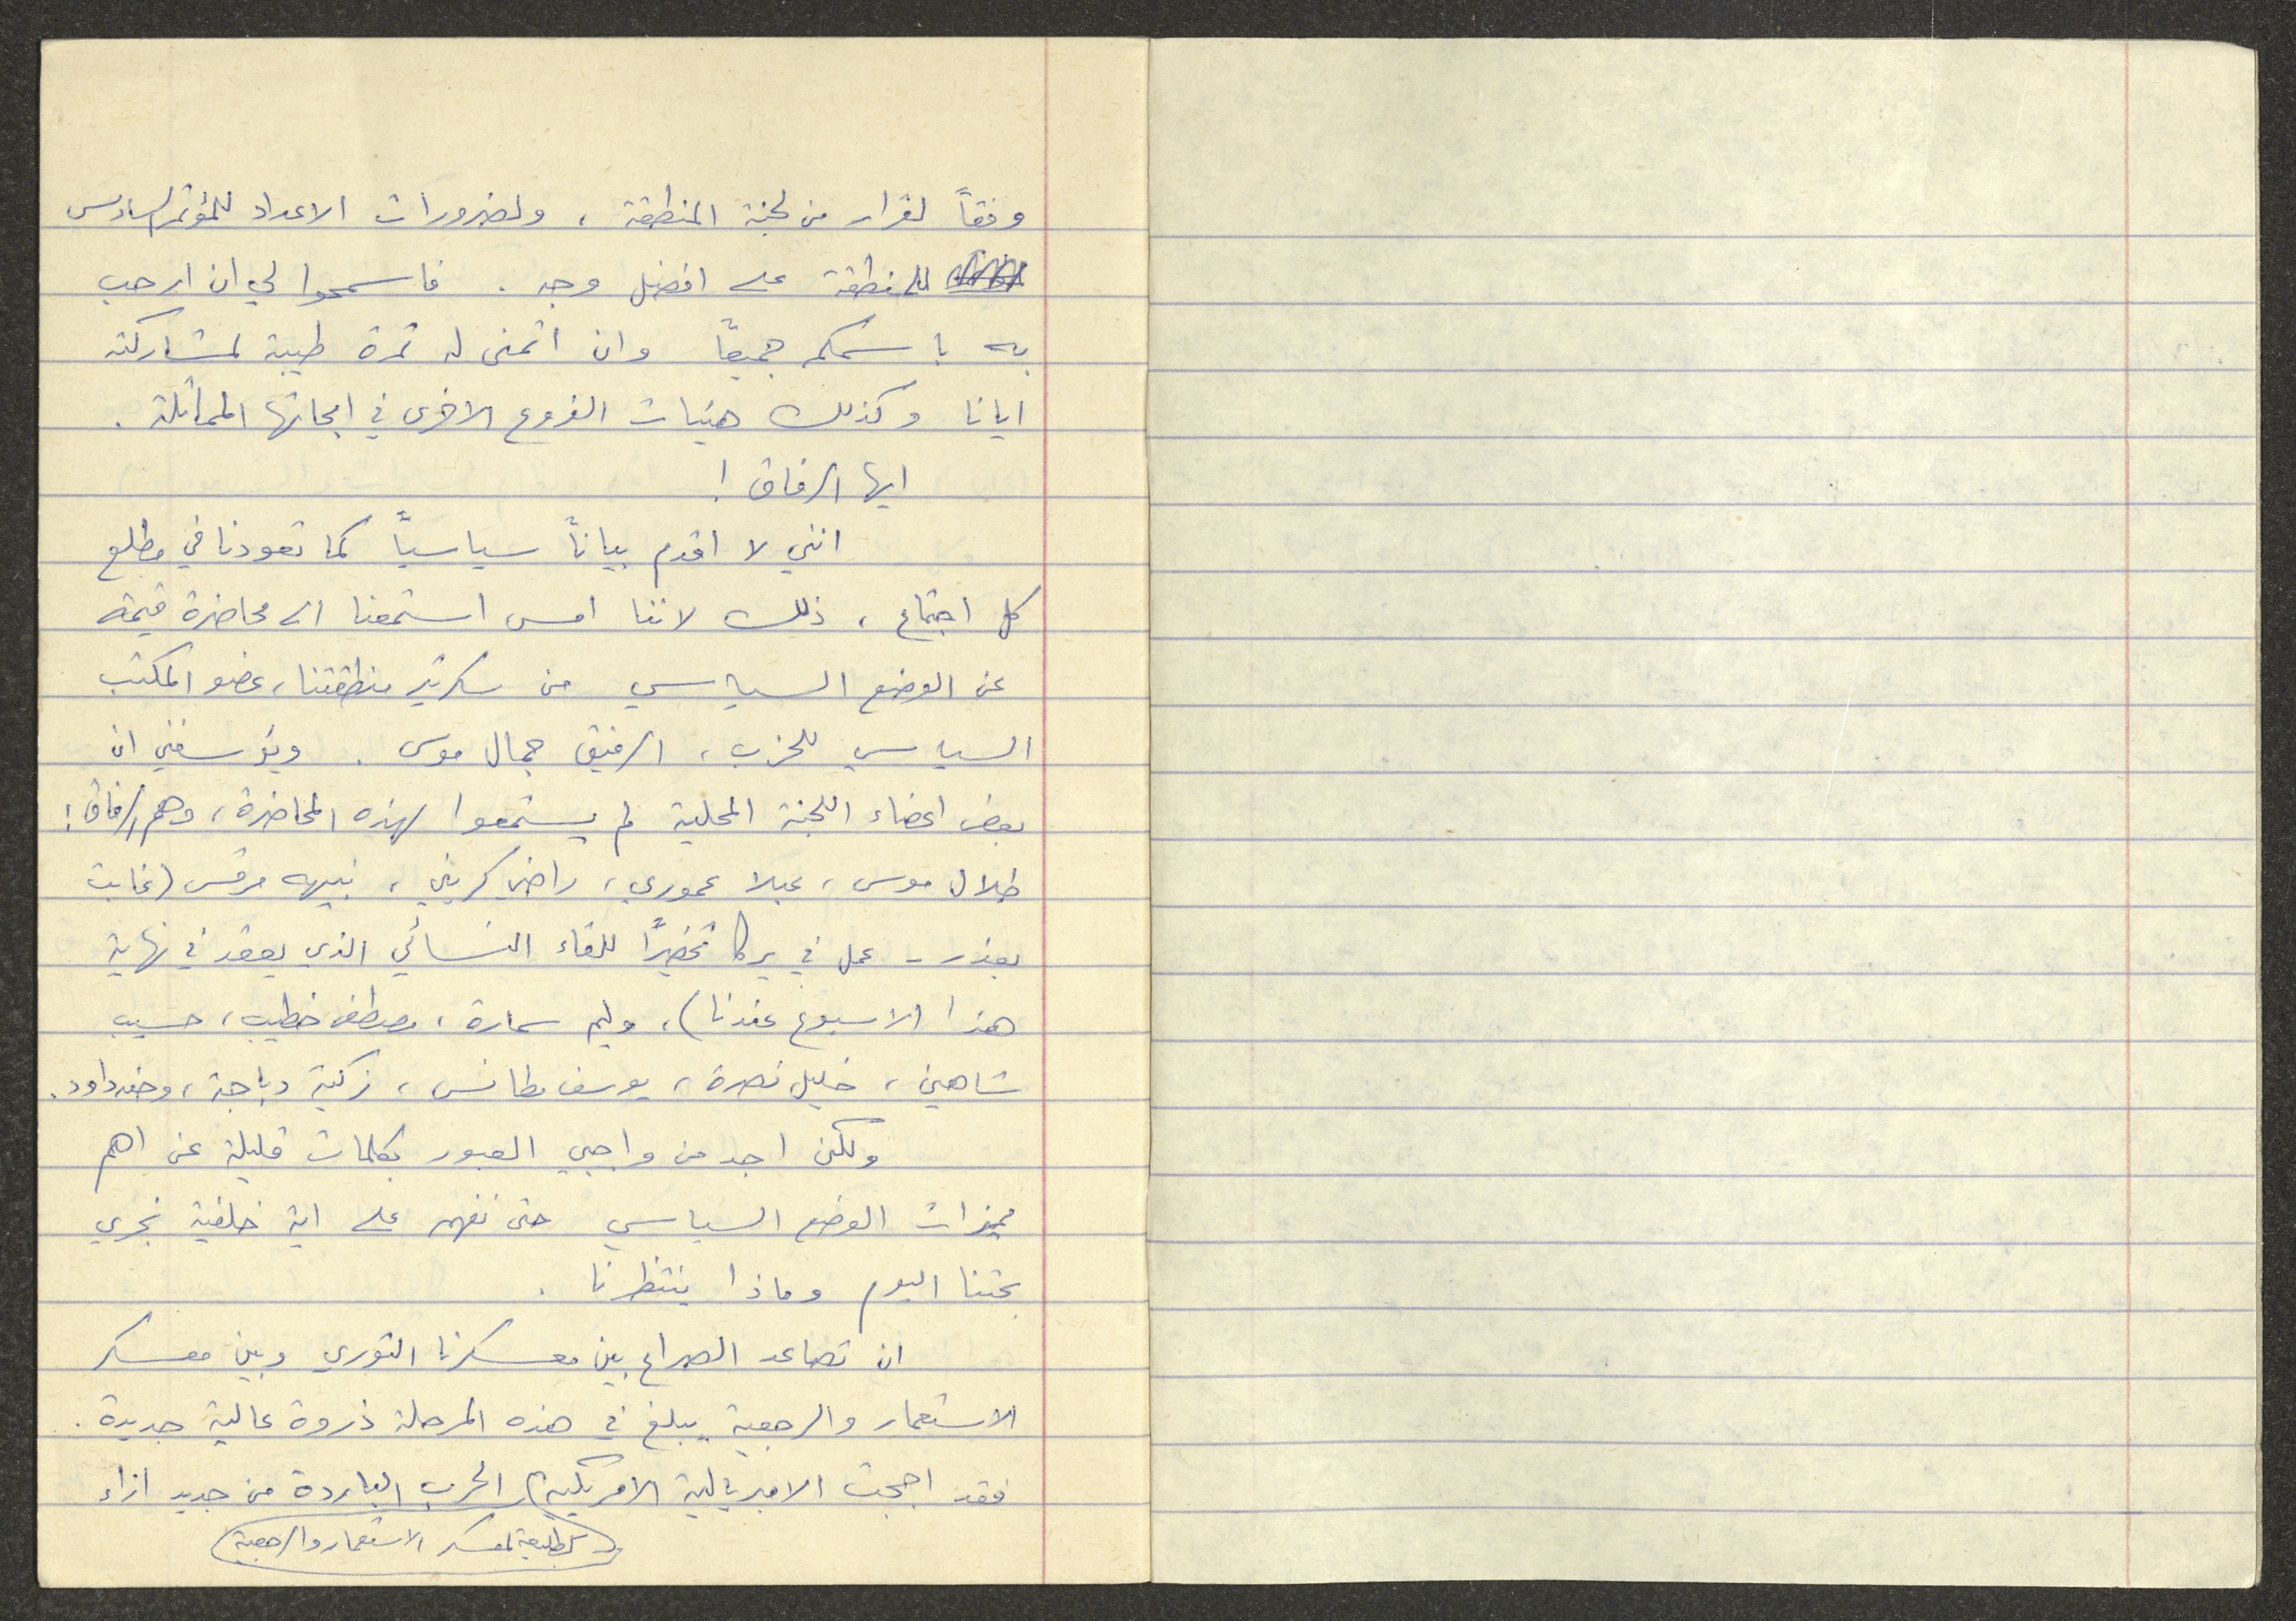 وفقاً لقرار من لجنة المنطقة ، ولضرورات الاعداد للمؤتمر السادس
للمنطقة على افضل وجه . فاسمحوا لي ان ارحب
به باسمكم جميعاً وان اتمنى له ثمرة طيبة لمشاركته
ايانا وكذلك هيئات الفروع الاخرى في ابحاثها المماثلة .
ايها الرفاق !
انني لا اقدم بياناً سياسياً كما تعودنا في مطلع
كل اجتماع ، ذلك لاننا امس استمعنا الى محاضرة قيمة
عن الوضع السياسي من سكرتير منطقتنا، عضو المكتب
السياسي للحزب ، الرفيق جمال موسى . ويؤسفني ان
بعض اعضاء اللجنة المحلية لم يستمعوا لهذه المحاضرة، وهم الرفاق :
طلال موسى ، عبلا عموري ، راضي كريني ، نبيهه مرقس (غابت
بعذر - عمل في يركا تحضيراً للقاء النسائي الذي يعقد في نهاية
هذا الاسبوع عندنا) ، وليم سمارة ، مصطفى خطيب ، حسيب
شاهين ، خليل نصرة ، يوسف مطانس ، زكية دباجة ، وخضر داود .
ولكن اجد من واجبي العبور بكلمات قليلة عن اهم
مميزات الوضع السياسي حتى نفهم على اية خلفية نجري
بحثنا اليوم وماذا ينتظرنا .
ان تصاعد الصراع بين معسكرنا الثوري وبين معسكر
الاستعمار والرجعية يبلغ في هذه المرحلة ذروة عالية جديدة .
فقد اججت الامبريالية الامريكية الحرب الباردة من جديد ازاء
كطليعة لمعسكر الاستعمار والرجعية